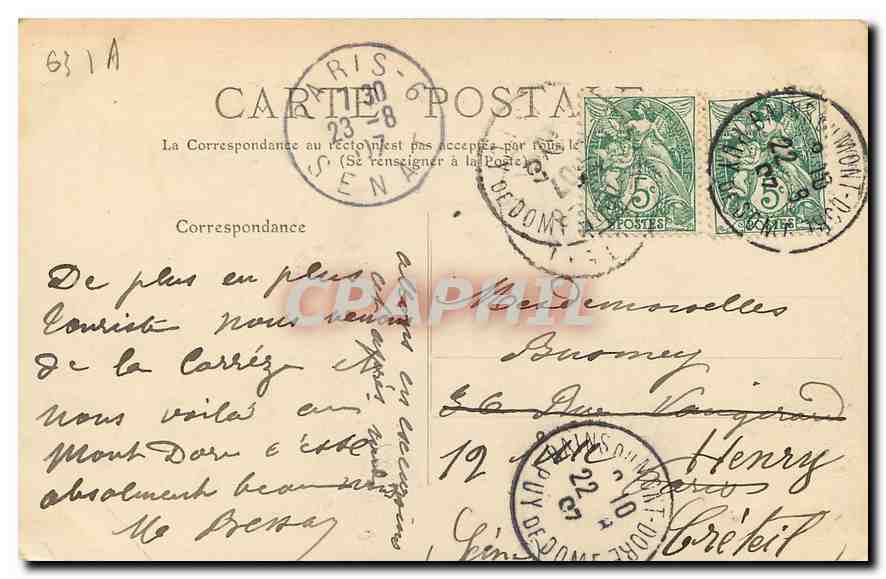 63 1 A
CARTE POSTALE
La Correspondance au recto n'est pas acceptée par tous le
(Se renseigner à la Poste)
PARIS - 6
7 30
23 - 8
07
SENAT
5c
POSTES
5c
POSTES
BAINS DU MONT-DORE
22 8
07
PUY DE DOME
Correspondance
De plus en plus
touriste nous venons
de la Corrèze et
nous voilà au
Mont Dore c'est
absolument beau nous
allons en excursions
après midi
Me
Mesdemoiselles
36 Rue Vaugirard
Paris
12 rue Henry
Créteil
Seine
BAINS DU MONT-DORE
22 8
07
PUY DE DOME
CPAPHIL